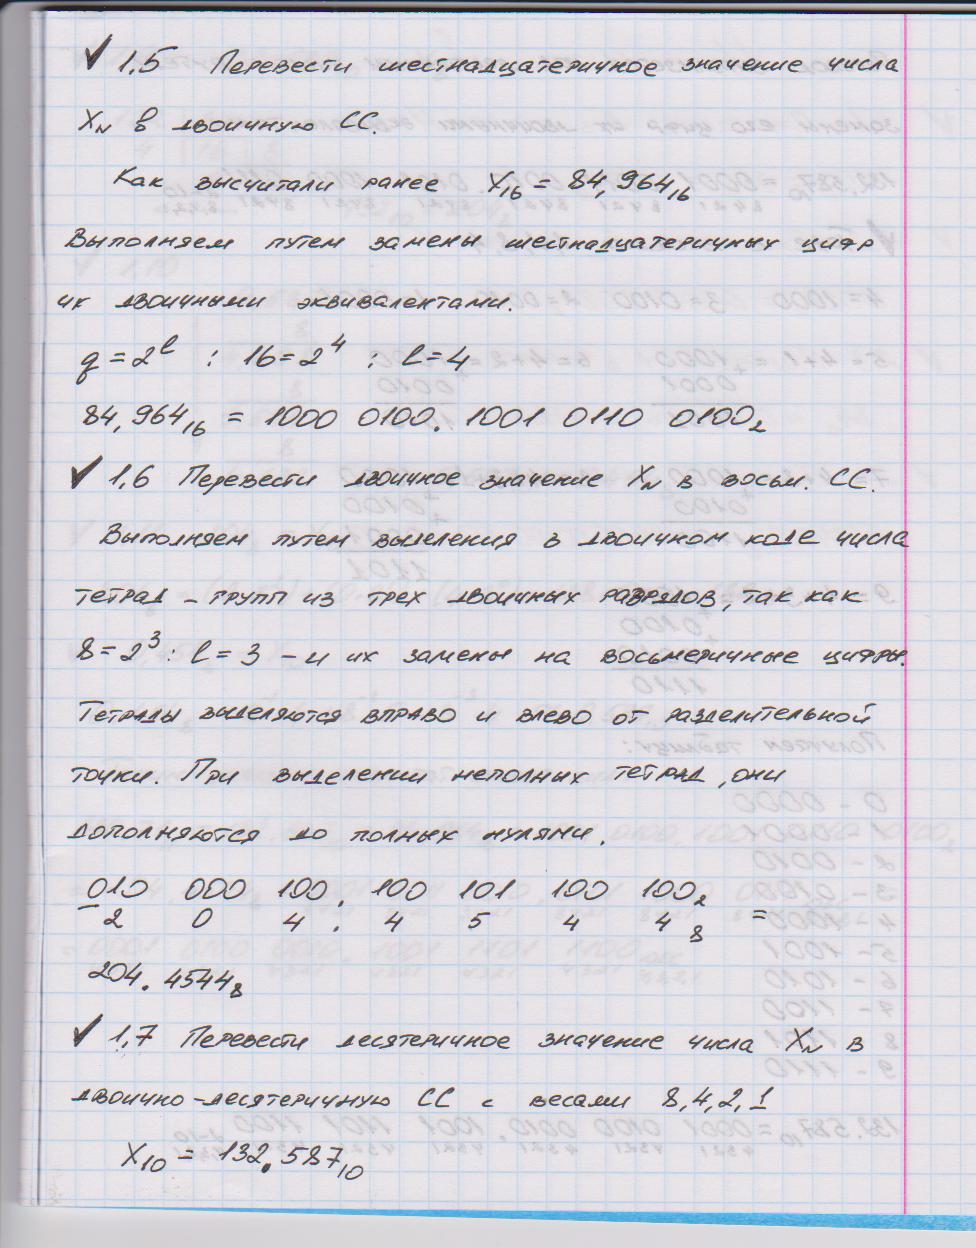 ✓ 1,5 Перевести шестнадцатеричное значение числа
X_N в двоичную СС.
Как высчитали ранее X₁₆ = 84,964₁₆
Выполняем путем замены шестнадцатеричных цифр
их двоичными эквивалентами.
q = 2^l ; 16 = 2⁴ ; l = 4
84,964₁₆ = 1000 0100. 1001 0110 0100₂
✓ 1,6 Перевести двоичное значение X_N в восьм. СС.
Выполняем путем выделения в двоичном коде числа
тетрад – групп из трех двоичных разрядов, так как
8 = 2³ ; l = 3 – и их замены на восьмеричные цифры.
Тетрады выделяются вправо и влево от разделительной
точки. При выделении неполных тетрад, они
дополняются до полных нулями.
010 000 100 . 100 101 100 100₂
2 0 4 . 4 5 4 4 ₈ =
204. 4544₈
✓ 1,7 Перевести десятеричное значение числа X_N в
двоично-десятеричную СС с весами 8,4,2,1
X₁₀ = 132.587₁₀